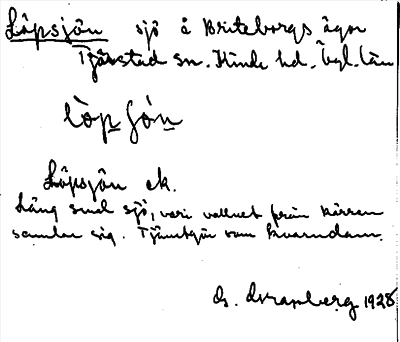 Löpsjön sjö å Briteborgs ägor
Tjärstad sn. Kinda hd. Ögl. län
löp ʃón
Löpsjön ek.
Lång smal sjö, vari vattnet från kärren
samlar sig. Tjänstgör som kvarndam.
G. Granberg 1928